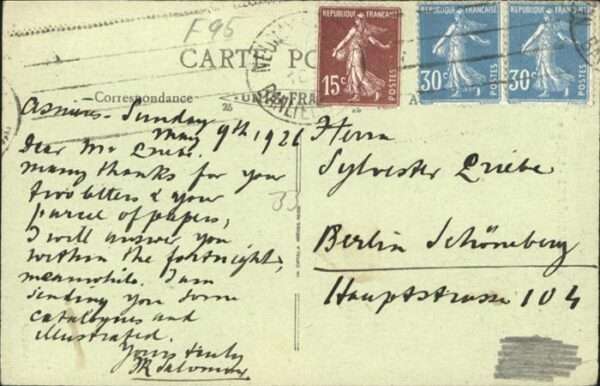 F95
CARTE
REPUBLIQUE FRANÇAISE
15c
POSTES
REPUBLIQUE FRANÇAISE
30c
POSTES
REPUBLIQUE FRANÇAISE
30c
POSTES
Correspondance
Asnières - Sunday
May 9th 1926
Dear Mr Priebe.
Many thanks for your
two letters & your
parcel of papers,
I will answer you
within the fortnight,
meanwhile. I am
sending you some
catalogues and
illustrated.
Yours truly
Salomon
33
Herrn
Sylvester Priebe
Berlin Schöneberg
Hauptstrasse 104